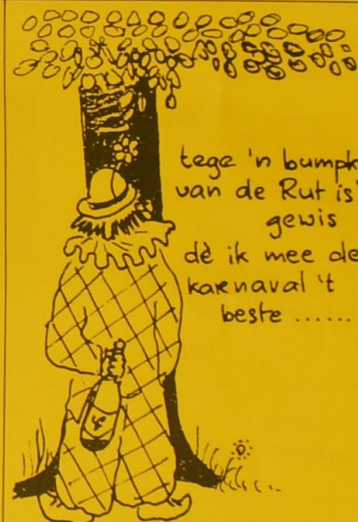 tege 'n bumpk
van de Rut is'
gewis
dè ik mee de
karnaval 't
beste ......